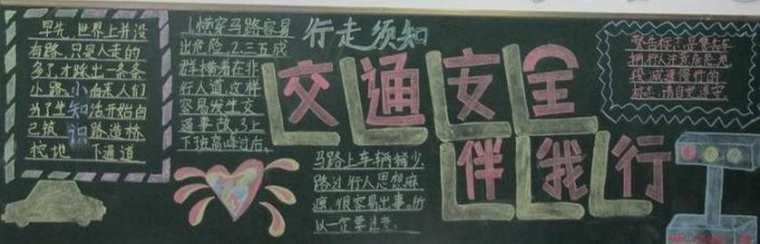 早先,世界上并没
有路,只是人走的
多了才踩出一条条
小路.小 后来人们
为了生知活开始自
己筑 识 路造桥
挖地 下通道
1.横穿马路容易
出危险.2.三五成
群横着在非
行人道,这样
容易发生交
通事故,3.上
下班高峰过后。
行走须知
马路上车辆稀少
路过行人思想麻
痹.很容易出事。所
以一定要注意.
交通安全
伴我行
警告标志是警告车